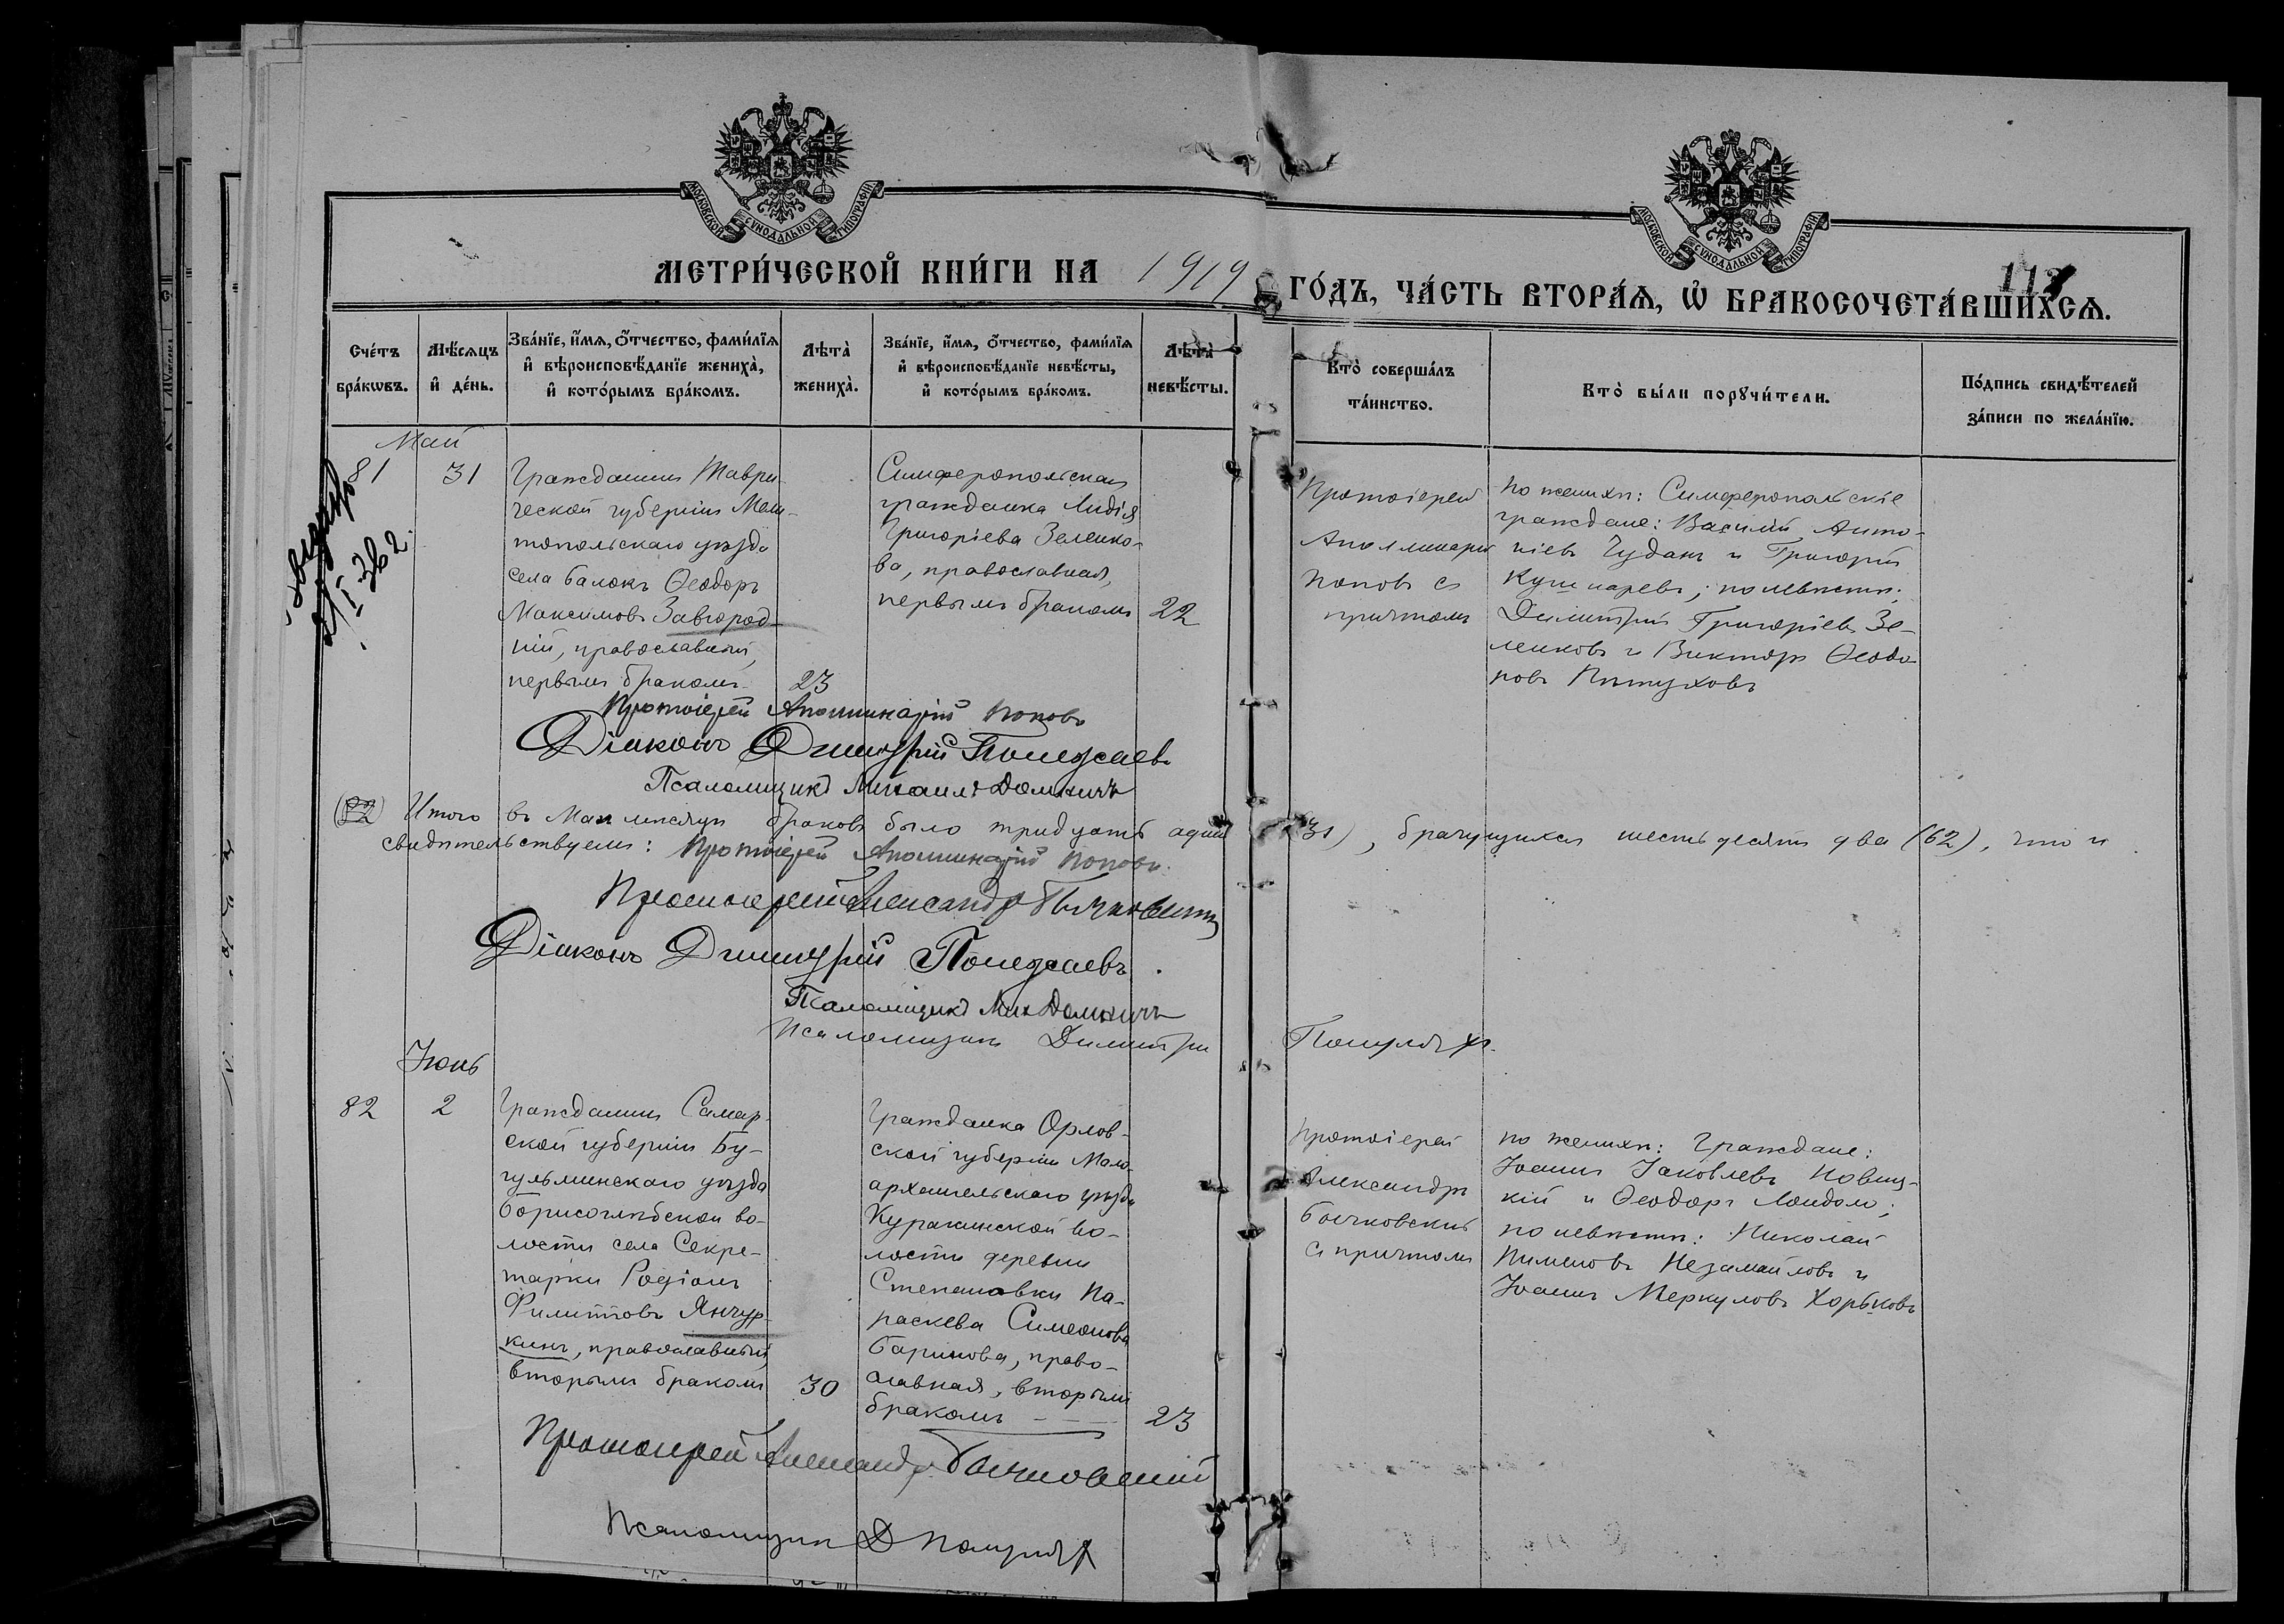 МОСКОВСКОЙ СѴНОДАЛЬНОЙ ТИПОГРАФІИ
МОСКОВСКОЙ СѴНОДАЛЬНОЙ ТИПОГРАФІИ
МЕТРИ́ЧЕСКОЙ КНИ́ГИ НА 1919 ГО́ДЪ, ЧА́СТЬ ВТОРА́Я, Ѡ БРАКОСОЧЕТА́ВШИХСЯ.
Сче́тъ бра́кѡвъ.
Мѣ́сяцъ и де́нь.
Зва́нїе, и́мя, о́тчество, фами́лїя и вѣроисповѣ́данїе жениха̀, и кото́рымъ бра́комъ.
Лѣта̀ жениха̀.
Зва́нїе, и́мя, о́тчество, фами́лїя и вѣроисповѣ́данїе невѣ́сты, и кото́рымъ бра́комъ.
Лѣта̀ невѣ́сты.
Кто̀ соверша́лъ та́инство.
Кто̀ бы́ли порꙋчи́тели.
По́дпись свидѣ́телей за́писи по жела́нїю.
Май
81
31
Гражданинъ Таври-
ческой губерніи Мели-
топольскаго уѣзда
села Балокъ Ѳеодоръ
Максимовъ Завгород-
ній, православный,
первымъ бракомъ
23
Симферопольская
гражданка Лидія
Григоріева Зеленко-
ва, православная,
первымъ бракомъ
22
Протоіерей
Аполлинарій
Поповъ съ
причтомъ
по женихѣ: Симферопольскіе
граждане: Василій Анто-
ніевъ Чуданъ и Григорій
Кушнаревъ; по невѣстѣ:
Димитрій Григоріевъ Зе-
ленковъ и Викторъ Ѳеодо-
ровъ Пѣтуховъ
Протоіерей Аполлинарій Поповъ
Діаконъ Дмитрій Полежаевъ
Псаломщикъ Михаилъ Домничъ
(82) Итого въ Маѣ мѣсяцѣ браковъ было тридцать одинъ (31), брачущихся шестьдесятъ два (62), что и
свидѣтельствуемъ: Протоіерей Аполлинарій Поповъ.
Протоіерей Александръ Бычковскій
Діаконъ Дмитрій Полежаевъ.
Псаломщикъ Мих Домничъ
Псаломщикъ Димитрій
Іюнь
82
2
Гражданинъ Самар-
ской губерніи Бу-
гульминскаго уѣзда
Борисоглѣбской во-
лости села Секре-
тарки Родіонъ
Филипповъ Янчур-
кинъ, православный,
вторымъ бракомъ
30
Гражданка Орлов-
ской губерніи Мало-
архангельскаго уѣзда
Куракинской во-
лости деревни
Степановки Па-
раскева Симеонова
Баринова, право-
славная, вторымъ
бракомъ
23
Протоіерей
Александръ
Бычковскій
съ причтомъ
по женихѣ: Граждане:
Іоаннъ Іаковлевъ Новиц-
кій и Ѳеодоръ Лондоло;
по невѣстѣ: Николай
Пименовъ Незамайловъ и
Іоаннъ Меркуловъ Хорьковъ
Протоіерей Александръ Бычковскій
Псаломщикъ Д